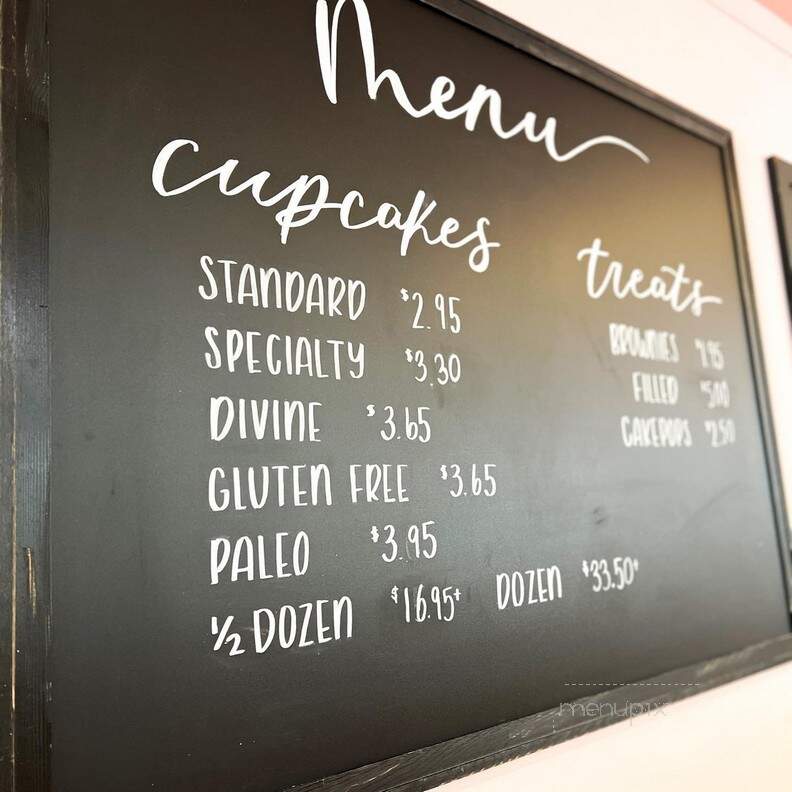 Menu
cupcakes
STANDARD $2.95
SPECIALTY $3.30
DIVINE $3.65
GLUTEN FREE $3.65
PALEO $3.95
1/2 DOZEN $16.95+ DOZEN $33.50+
treats
BROWNIES
FILLED
CAKEPOPS $2.50
menupix